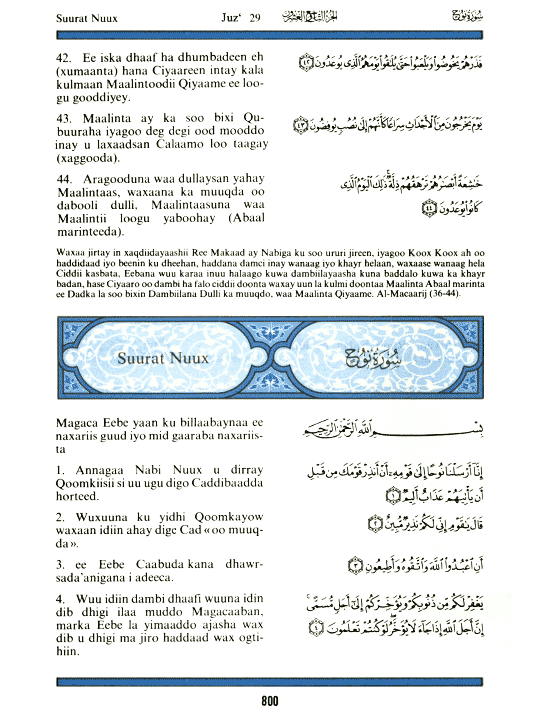 Suurat Nuux Juz‘ 29 الجزء التاسع والعشرون سورة نوح
42. Ee iska dhaaf ha dhumbadeen eh
(xumaanta) hana Ciyaareen intay kala
kulmaan Maalintoodii Qiyaame ee loo-
gu gooddiyey.
فَذَرْهُمْ يَخُوضُوا۟ وَيَلْعَبُوا۟ حَتَّىٰ يُلَٰقُوا۟ يَوْمَهُمُ ٱلَّذِى يُوعَدُونَ ٤٢
43. Maalinta ay ka soo bixi Qu-
buuraha iyagoo deg degi ood mooddo
inay u laxaadsan Calaamo loo taagay
(xaggooda).
يَوْمَ يَخْرُجُونَ مِنَ ٱلْأَجْدَاثِ سِرَاعًا كَأَنَّهُمْ إِلَىٰ نُصُبٍ يُوفِضُونَ ٤٣
44. Aragooduna waa dullaysan yahay
Maalintaas, waxaana ka muuqda oo
dabooli dulli, Maalintaasuna waa
Maalintii loogu yaboohay (Abaal
marinteeda).
خَٰشِعَةً أَبْصَٰرُهُمْ تَرْهَقُهُمْ ذِلَّةٌ ذَٰلِكَ ٱلْيَوْمُ ٱلَّذِى
كَانُوا۟ يُوعَدُونَ ٤٤
Waxaa jirtay in xaqdiidayaashii Ree Makaad ay Nabiga ku soo ururi jireen, iyagoo Koox Koox ah oo
haddidaad iyo beenin ku dheehan, haddana damci inay wanaag iyo khayr helaan, waxaase wanaag hela
Ciddii kasbata, Eebana wuu karaa inuu halaago kuwa dambiilayaasha kuna baddalo kuwa ka khayr
badan, hase Ciyaaro oo dambi ha falo ciddii doonta waxay uun la kulmi doontaa Maalinta Abaal marinta
ee Dadka la soo bixin Dambiilana Dulli ka muuqdo, waa Maalinta Qiyaame. Al-Macaarij (36-44).
Suurat Nuux سورة نوح
Magaca Eebe yaan ku billaabaynaa ee
naxariis guud iyo mid gaaraba naxariis-
ta
بِسْمِ ٱللَّهِ ٱلرَّحْمَٰنِ ٱلرَّحِيمِ
1. Annagaa Nabi Nuux u dirray
Qoomkiisii si uu ugu digo Caddibaadda
horteed.
إِنَّآ أَرْسَلْنَا نُوحًا إِلَىٰ قَوْمِهِۦٓ أَنْ أَنذِرْ قَوْمَكَ مِن قَبْلِ
أَن يَأْتِيَهُمْ عَذَابٌ أَلِيمٌ ١
2. Wuxuuna ku yidhi Qoomkayow
waxaan idiin ahay dige Cad «oo muuq-
da».
قَالَ يَٰقَوْمِ إِنِّى لَكُمْ نَذِيرٌ مُّبِينٌ ٢
3. ee Eebe Caabuda kana dhawr-
sada'anigana i adeeca.
أَنِ ٱعْبُدُوا۟ ٱللَّهَ وَٱتَّقُوهُ وَأَطِيعُونِ ٣
4. Wuu idiin dambi dhaafi wuuna idin
dib dhigi ilaa muddo Magacaaban,
marka Eebe la yimaaddo ajasha wax
dib u dhigi ma jiro haddaad wax ogti-
hiin.
يَغْفِرْ لَكُم مِّن ذُنُوبِكُمْ وَيُؤَخِّرْكُمْ إِلَىٰٓ أَجَلٍ مُّسَمًّى
إِنَّ أَجَلَ ٱللَّهِ إِذَا جَآءَ لَا يُؤَخَّرُ لَوْ كُنتُمْ تَعْلَمُونَ ٤
800